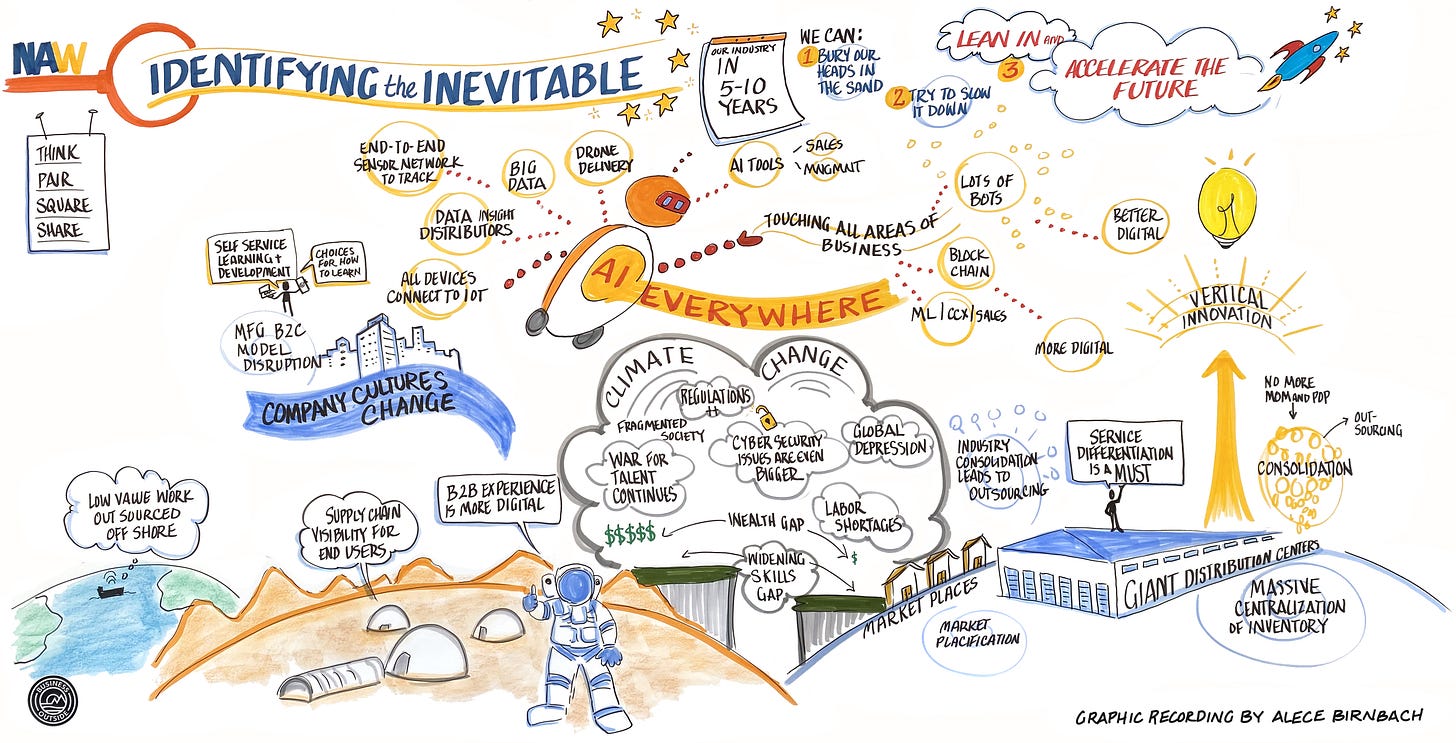 NAW
IDENTIFYING the INEVITABLE
THINK
PAIR
SQUARE
SHARE
OUR INDUSTRY
IN
5-10
YEARS
WE CAN:
1 BURY OUR
HEADS IN
THE SAND
2 TRY TO SLOW
IT DOWN
3
LEAN IN AND
ACCELERATE THE
FUTURE
END-TO-END
SENSOR NETWORK
TO TRACK
BIG
DATA
DRONE
DELIVERY
AI TOOLS
SALES
MNGMNT
DATA INSIGHT
DISTRIBUTORS
ALL DEVICES
CONNECT TO IOT
AI EVERYWHERE
TOUCHING ALL AREAS OF
BUSINESS
LOTS OF
BOTS
BETTER
DIGITAL
BLOCK
CHAIN
ML/CCX/SALES
MORE DIGITAL
SELF SERVICE
LEARNING +
DEVELOPMENT
CHOICES
FOR HOW
TO LEARN
MFG B2C
MODEL
DISRUPTION
COMPANY CULTURES
CHANGE
CLIMATE CHANGE
REGULATIONS
++
FRAGMENTED
SOCIETY
WAR FOR
TALENT
CONTINUES
CYBER SECURITY
ISSUES ARE EVEN
BIGGER
GLOBAL
DEPRESSION
$$$$$
WEALTH GAP
$
LABOR
SHORTAGES
WIDENING
SKILLS
GAP
VERTICAL
INNOVATION
INDUSTRY
CONSOLIDATION
LEADS TO
OUTSOURCING
SERVICE
DIFFERENTIATION
IS A MUST
NO MORE
MOM AND POP
OUT-
SOURCING
CONSOLIDATION
LOW VALUE WORK
OUT SOURCED
OFF SHORE
SUPPLY CHAIN
VISIBILITY FOR
END USERS
B2B EXPERIENCE
IS MORE DIGITAL
MARKET PLACES
MARKET
PLACIFICATION
GIANT DISTRIBUTION CENTERS
MASSIVE
CENTRALIZATION
OF INVENTORY
BUSINESS
OUTSIDE
GRAPHIC RECORDING BY ALECE BIRNBACH